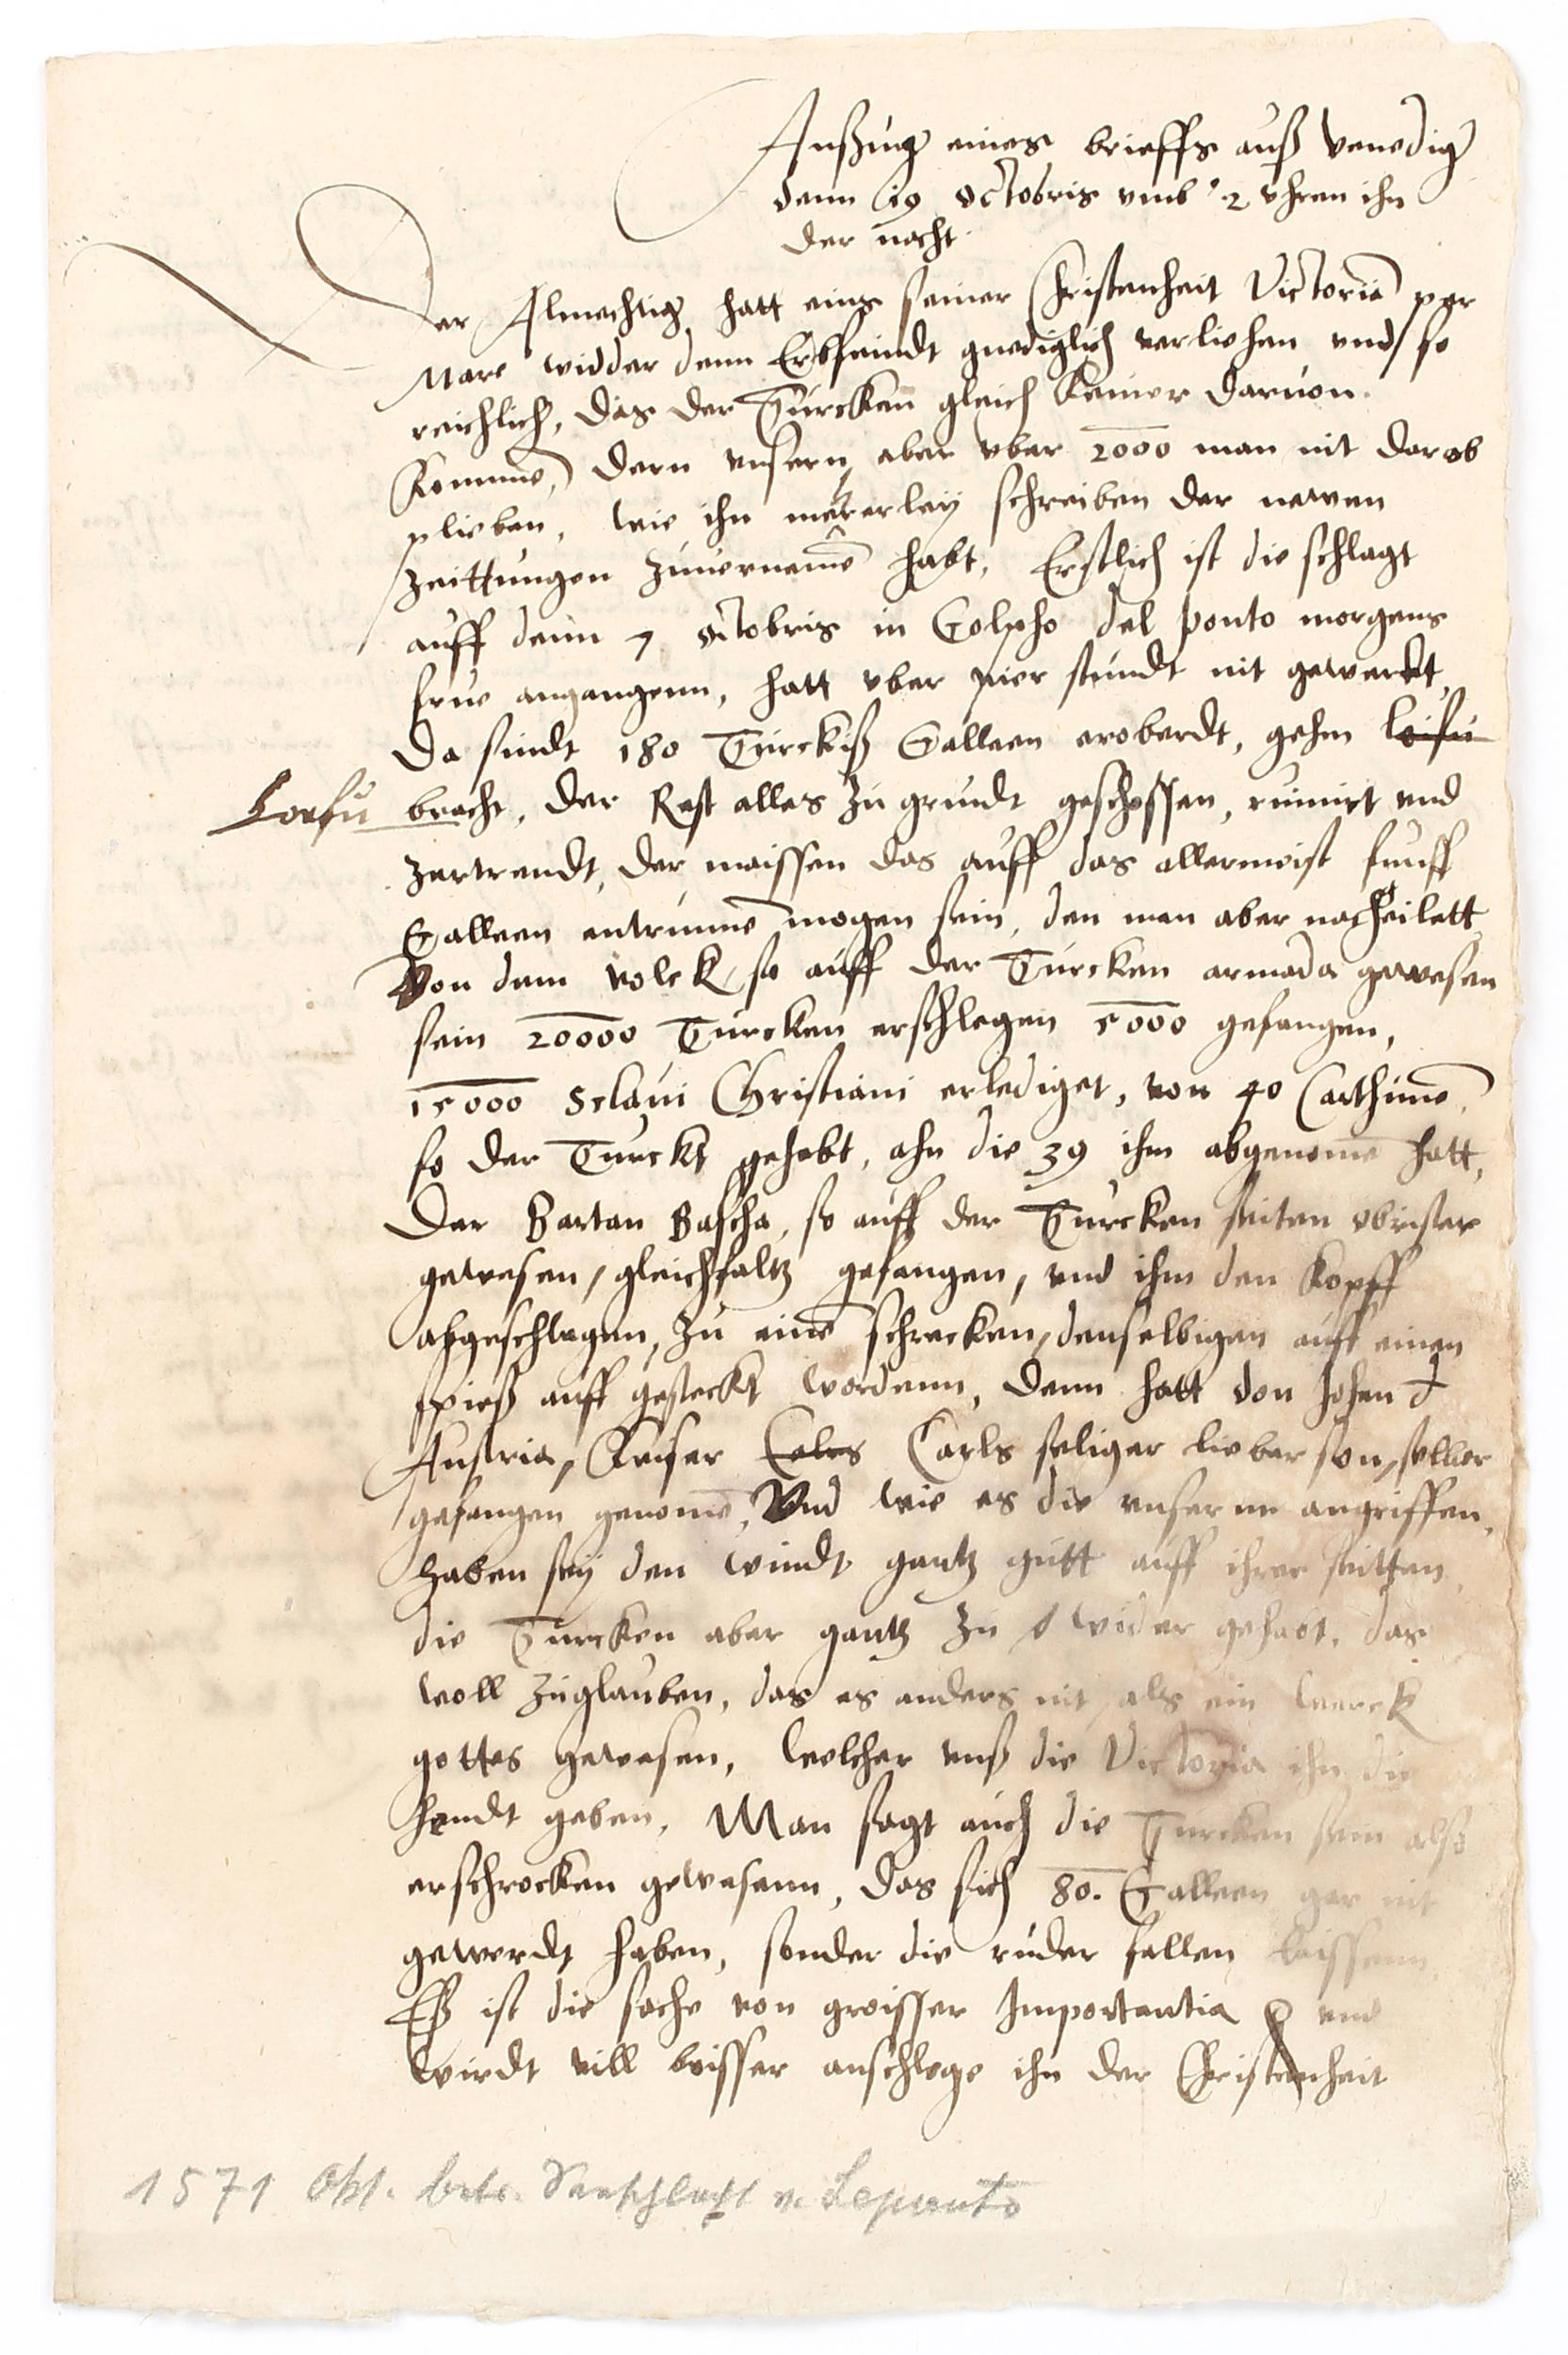 Außzug eines brieffs auß Venedig
denn 19 Octobris vmb 2 vhren ihn
der nacht.
Der Almechtig hatt eins seiner Christenheit Victoria per
Mare widder denn Erbfeindt gnediglich verliehen vnd so
reichlich, das der Turcken gleich keiner daruon
komme, dern vnsern aber vber 2000 man nit dar ob
plieben, wie ihr mererley schreiben der newen
zeittungen zuuerneme habt, Erstlich ist die schlagt
auff denn 7 Octobris in Golpho del ponto morgens
frue angangenn, hatt vber vier stundt nit gewerkt,
Da sindt 180 Turckiß Galleen eroberdt, gehn
Corfu bracht, der Rest alles zu grundt geschossen, ruinirt vnd
zertrendt, der maissen das auff das allermeist funff
Galleen entrunne mogen sein, den man aber nacheilett
Von dem volck so auff der Turcken armada gewesen
sein 20000 Turcken erschlagen 5000 gefangen,
15000 Sclaui Christiani erlediget, von 40 Carthune
so der Turck gehabt, ahn die 39 ihm abgenome hatt,
Der Bartan Bascha, so auff der Turcken seiten obrister
gewesen, gleichfaltz gefangen, vnd ihm den kopff
abgeschlagen, zu eine schrecken, denselbigen auff einen
spieß auff gesteckt wordenn, denn hatt don Johan d
Austria, Keiser Carls seliger lieber son, selber
gefangen genome, Vnd wie es die vnsernn angriffen,
haben sey den windt gantz gutt auff ihrer seitten,
die Turcken aber gantz zu wider gehabt, das
woll zuglauben, das es anders nit als ein werck
gottes gewesen, welcher vnß die Victoria ihn die
handt geben, Man sagt auch die Turcken sein also
erschrocken gewesenn, das sich 80. Galleen gar nit
gewerdt haben, sonder die ruder fallen laissenn,
Eß ist die sache von groisser Importantia vnd
wirdt vill bisser anschlege ihn der Christenheit
1571 Okt. betr. Seeschlacht v. Lepanto